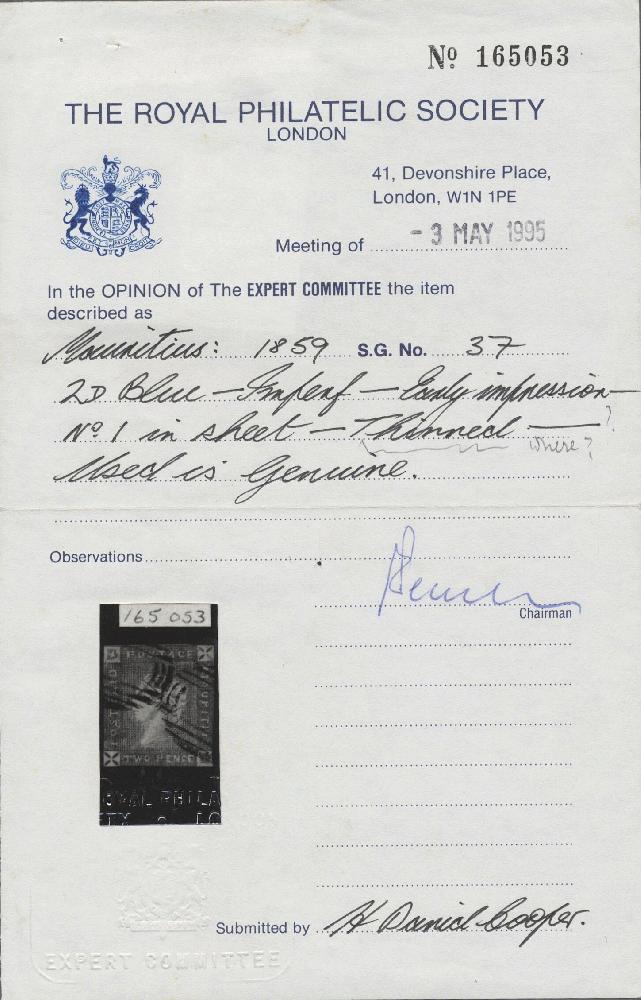 Nº 165053
THE ROYAL PHILATELIC SOCIETY
LONDON
41, Devonshire Place,
London, W1N 1PE
Meeting of - 3 MAY 1995
In the OPINION of The EXPERT COMMITTEE the item
described as
Mauritius: 1859 S.G. No. 37
2D Blue – Imperf – Early impression –
Nº 1 in sheet – Thinned – ?
where?
Used is Genuine.
Observations
Chairman
165 053
POSTAGE
POST PAID
MAURITIUS
TWO PENCE
ROYAL PHILA
TY LO
Submitted by H Daniel Cooper.
EXPERT COMMITTEE